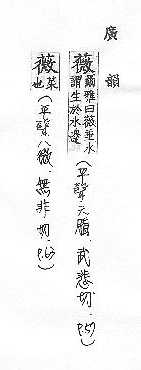 廣韻
薇 爾雅曰薇垂水
謂生於水邊 (平聲六脂、武悲切、P.57)
薇 菜
也 (平聲八微、無非切、P.63)